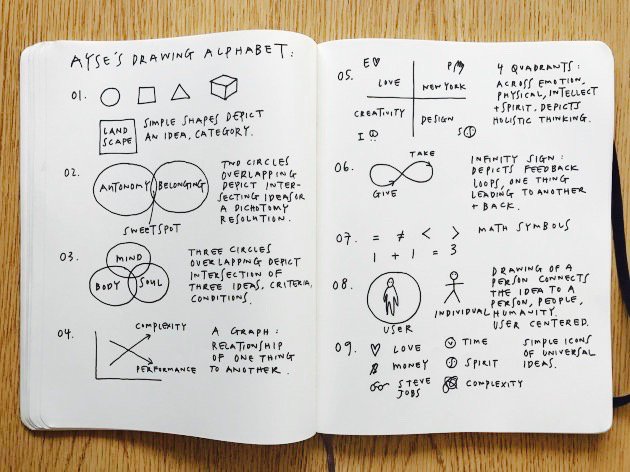 AYSE'S DRAWING ALPHABET:
01.
LAND
SCAPE
SIMPLE SHAPES DEPICT
AN IDEA, CATEGORY.
02.
AUTONOMY BELONGING
SWEETSPOT
TWO CIRCLES
OVERLAPPING
DEPICT INTER-
SECTING IDEAS OR
A DICHOTOMY
RESOLUTION.
03.
MIND
BODY SOUL
THREE CIRCLES
OVERLAPPING DEPICT
INTERSECTION OF
THREE IDEAS, CRITERIA,
CONDITIONS.
04.
COMPLEXITY
PERFORMANCE
A GRAPH:
RELATIONSHIP
OF ONE THING
TO ANOTHER.
05.
E P
LOVE NEW YORK
CREATIVITY DESIGN
I S
4 QUADRANTS:
ACROSS EMOTION,
PHYSICAL, INTELLECT
+ SPIRIT, DEPICTS
HOLISTIC THINKING.
06.
TAKE
GIVE
INFINITY SIGN:
DEPICTS FEEDBACK
LOOPS, ONE THING
LEADING TO ANOTHER
+ BACK.
07.
= ≠ < >
1 + 1 = 3
MATH SYMBOLS
08.
USER
INDIVIDUAL
DRAWING OF A
PERSON CONNECTS
THE IDEA TO A
PERSON, PEOPLE,
HUMANITY.
USER CENTERED.
09.
LOVE
$ MONEY
STEVE
JOBS
TIME
SPIRIT
COMPLEXITY
SIMPLE ICONS
OF UNIVERSAL
IDEAS.